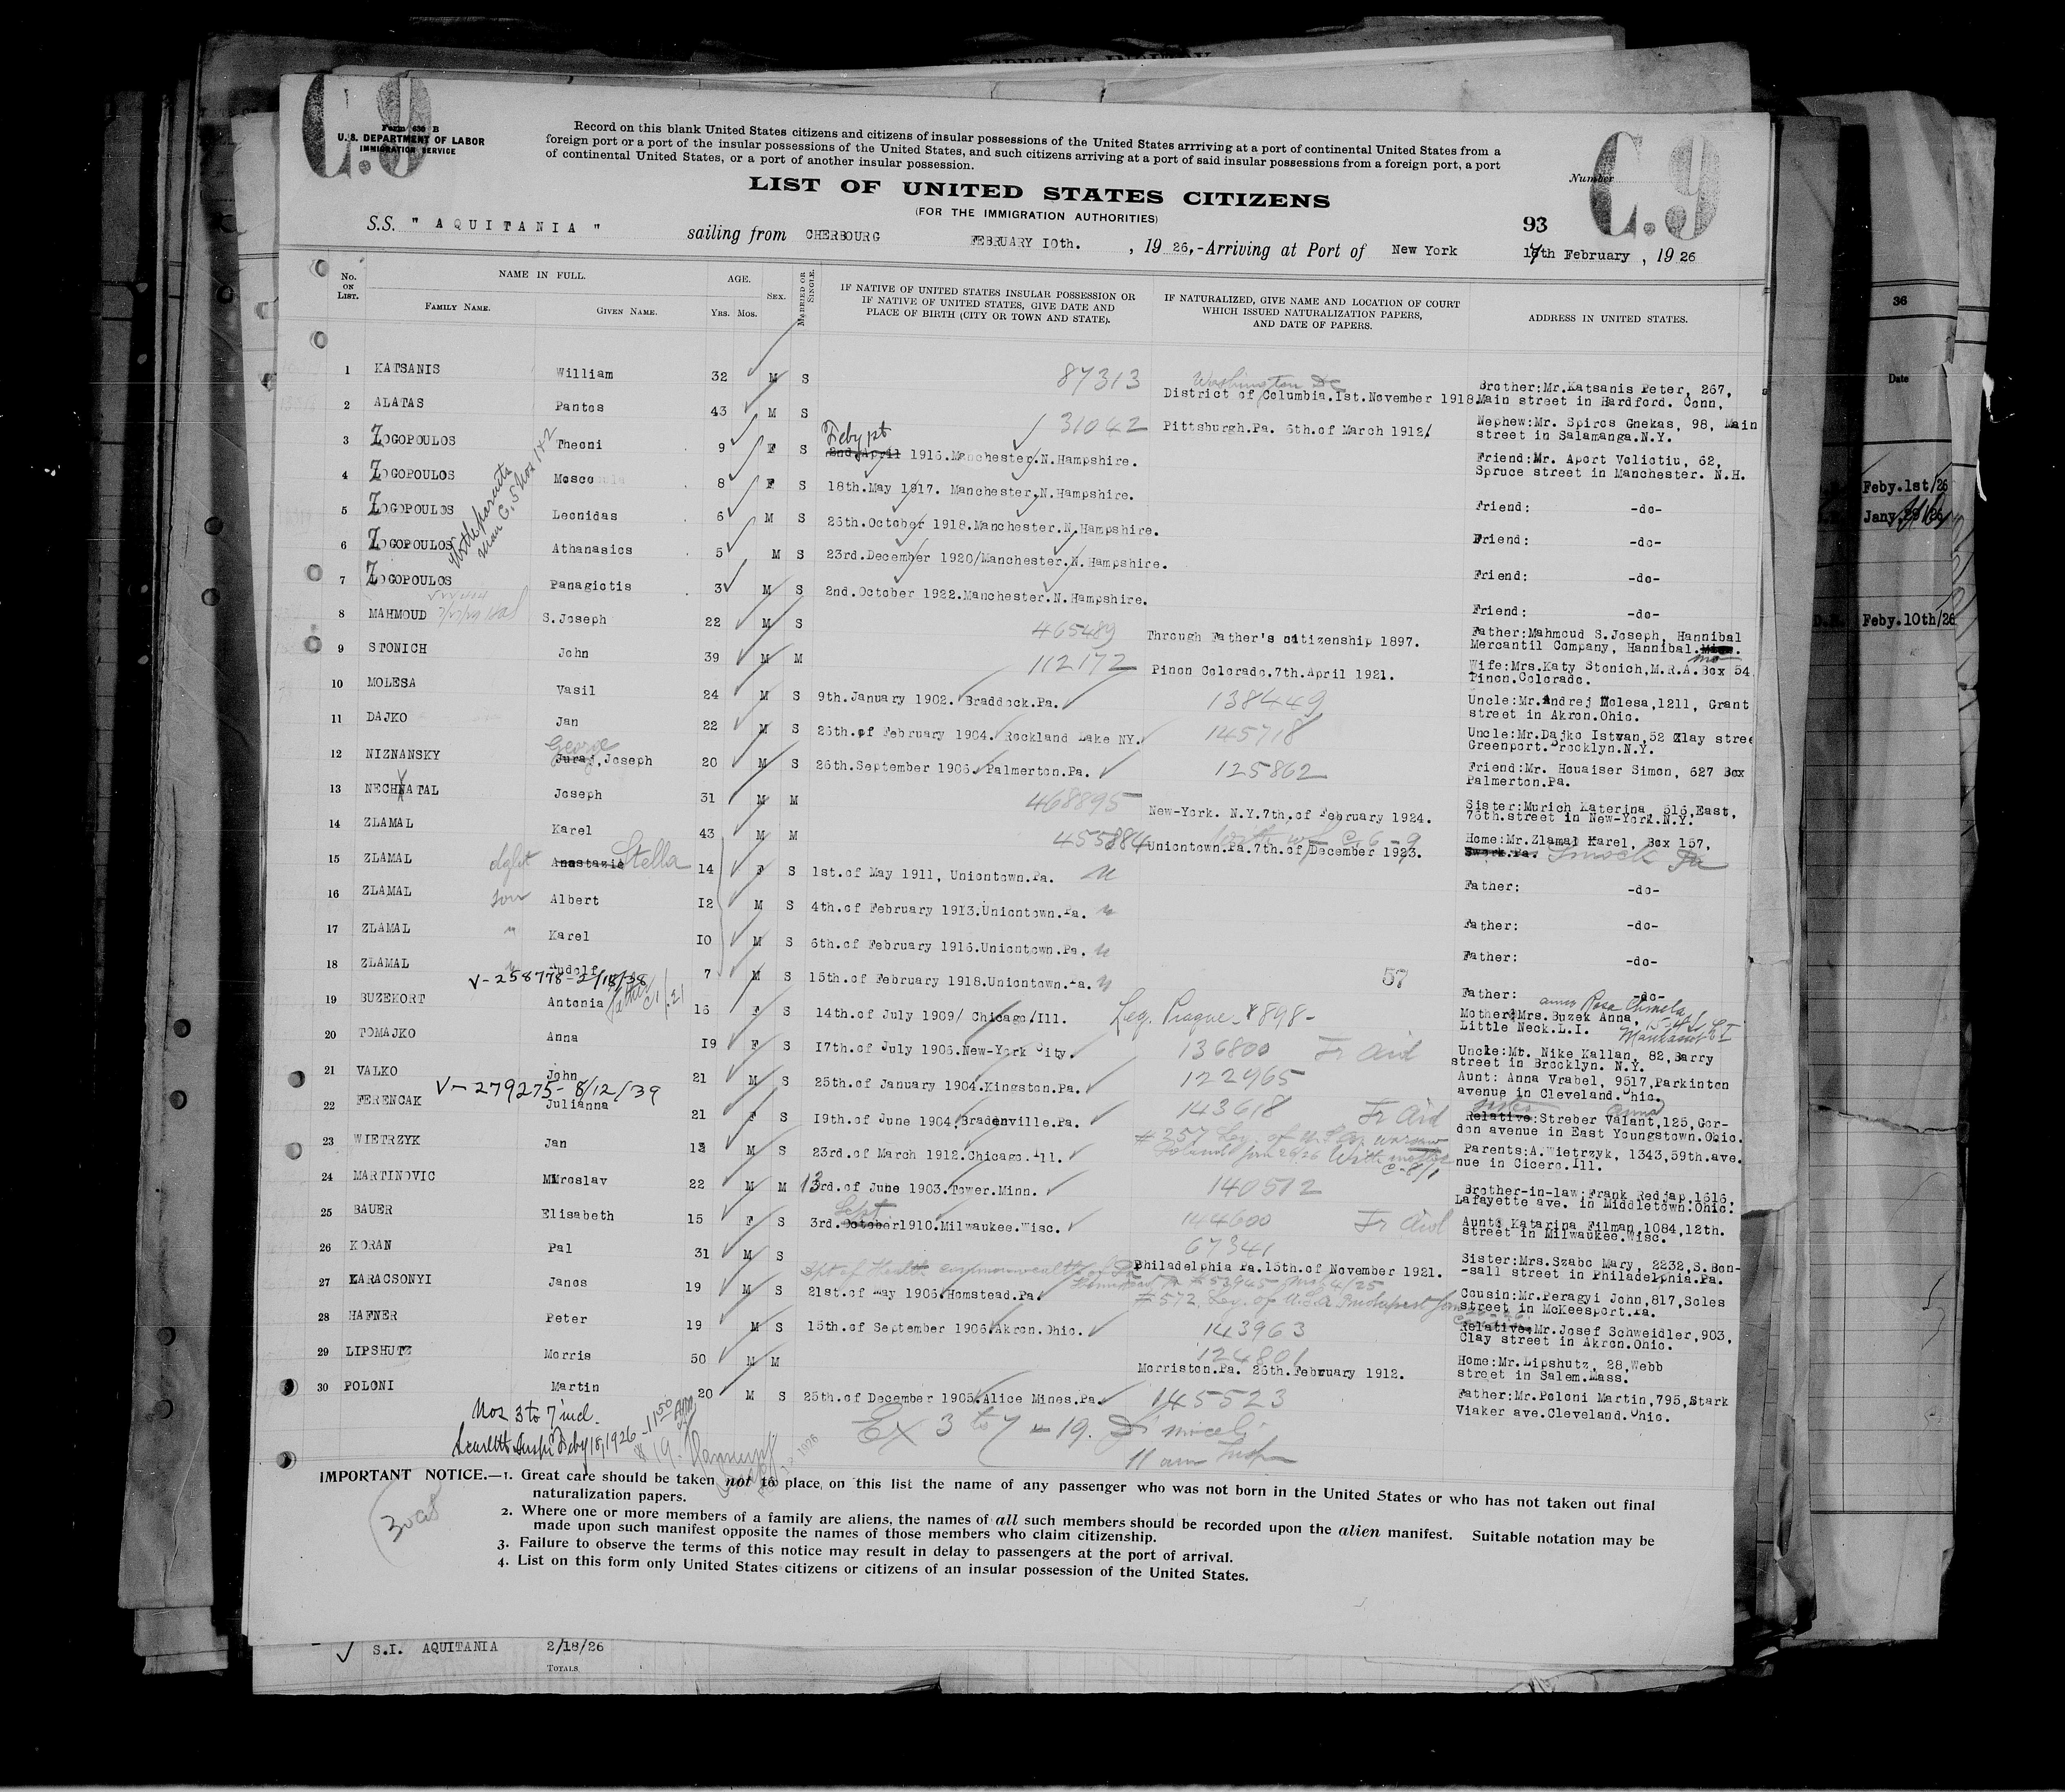 C.9
C.9
Form 630 B
U. S. DEPARTMENT OF LABOR
IMMIGRATION SERVICE
Record on this blank United States citizens and citizens of insular possessions of the United States arrriving at a port of continental United States from a
foreign port or a port of the insular possessions of the United States, and such citizens arriving at a port of said insular possessions from a foreign port, a port
of continental United States, or a port of another insular possession.
Number
LIST OF UNITED STATES CITIZENS
(FOR THE IMMIGRATION AUTHORITIES)
93
S.S. " AQUITANIA " sailing from CHERBOURG FEBRUARY 10th. , 19 26,-Arriving at Port of New York 17th February , 19 26
No. ON LIST. NAME IN FULL. AGE. SEX. MARRIED OR SINGLE. IF NATIVE OF UNITED STATES INSULAR POSSESSION OR IF NATIVE OF UNITED STATES, GIVE DATE AND PLACE OF BIRTH (CITY OR TOWN AND STATE). IF NATURALIZED, GIVE NAME AND LOCATION OF COURT WHICH ISSUED NATURALIZATION PAPERS, AND DATE OF PAPERS. ADDRESS IN UNITED STATES.
FAMILY NAME. GIVEN NAME. YRS. MOS.
1 KATSANIS William 32 M S 87313 Washington DC District of Columbia.Ist.November 1918. Brother:Mr.Katsanis Peter, 267, Main street in Hardford. Conn,
2 ALATAS Pantos 43 M S 31042 Pittsburgh.Pa. 6th.of March 1912/ Nephew:Mr. Spiros Gnekas, 98, Main street in Salamanga.N.Y.
3 ZOGOPOULOS Theoni 9 F S 2nd.April 1916.Manchester.N.Hampshire. Friend:Mr. Aport Voliotiu, 62, Spruce street in Manchester. N.H.
4 ZOGOPOULOS Mosco 8 F S 18th.May 1917. Manchester,N.Hampshire. Friend: -do-
5 ZOGOPOULOS Leonidas 6 M S 26th.October 1918.Manchester.N.Hampshire. Friend: -do-
6 ZOGOPOULOS Athanasios 5 M S 23rd.December 1920/Manchester.N.Hampshire. Friend: -do-
7 ZOGOPOULOS Panagiotis 3 M S 2nd.October 1922.Manchester.N.Hampshire. Friend: -do-
8 MAHMOUD S.Joseph 22 M S 465489 Through Father's citizenship 1897. Father:Mahmoud S.Joseph, Hannibal Mercantil Company, Hannibal. Mo
9 STONICH John 39 M M 112172 Pinon Colorado.7th.April 1921. Wife:Mrs.Katy Stonich,M.R.A.Box 54 Pinon.Colorado.
10 MOLESA Vasil 24 M S 9th.January 1902. Braddock.Pa. 138449 Uncle:Mr.Andrej Molesa,1211, Grant street in Akron.Ohio.
11 DAJKO Jan 22 M S 26th.of February 1904. Rockland Lake NY. 145718 Uncle:Mr.Dajko Istvan,52 Clay stree Greenport.Brooklyn.N.Y.
12 NIZNANSKY George Juraj,Joseph 20 M S 26th.September 1905. Palmerton.Pa. 125862 Friend:Mr. Houaiser Simon, 627 Box Palmerton.Pa.
13 NECHNATAL Joseph 31 M M 468895 New-York. N.Y.7th.of February 1924. Sister:Murich Katerina, 516,East, 76th.street in New-York.N.Y.
14 ZLAMAL Karel 43 M M 455884 Uniontown.Pa.7th.of December 1923. Home:Mr.Zlamal Karel, Box 157, Smock Pa
15 ZLAMAL Anastazie Stella 14 F S 1st.of May 1911, Uniontown.Pa. Father: -do-
16 ZLAMAL son Albert I2 M S 4th.of February 19I3.Uniontown.Pa. Father: -do-
17 ZLAMAL " Karel I0 M S 6th.of February 1915.Uniontown.Pa. Father: -do-
18 ZLAMAL " Rudolf 7 M S 15th.of February 1918.Uniontown.Pa. 57 Father: -do-
V-258778-2/18/38
19 BUZEKORT Antonia 16 F S 14th.of July 1909/ Chicago/Ill. Leg. Prague #898- Mother:Mrs.Buzek Anna, Little Neck.L.I.
20 TOMAJKO Anna I9 F S I7th.of July 1906.New-York City. 136800 Tr Aid Uncle:Mr. Nike Kallan, 82,Barry street in Brooklyn. N.Y.
21 VALKO John 21 M S 25th.of January 1904.Kingston.Pa. 122965 Aunt: Anna Vrabel, 9517,Parkinton avenue in Cleveland.Ohio.
V-279275-8/12/39
22 FERENCAK Julianna 21 F S I9th.of June 1904.Bradenville.Pa. 143618 Tr Aid Relative:Streber Valant,125, Gordon avenue in East Youngstown.Ohio.
23 WIETRZYK Jan 13 M S 23rd.of March 1912.Chicago.Ill. Parents:A.Wietrzyk, 1343,59th.avenue in Cicero.Ill.
24 MARTINOVIC Miroslav 22 M M 13rd.of June 1903.Tower.Minn. 140512 Brother-in-law:Frank Redjap.1616. Lafayette ave. in Middletown.Ohio.
25 BAUER Elisabeth 15 F S 3rd. Sept October1910.Milwaukee.Wisc. 144600 Tr Aid Aunt: Katarina Filman,1084,12th. street in Milwaukee.Wisc.
26 KORAN Pal 31 M S 67341 Philadelphia Pa.15th.of November 1921. Sister:Mrs.Szabo Mary, 2232,S.Bon-sall street in Philadelphia.Pa.
27 KARACSONYI Janos 19 M S 21st.of May 1906.Homstead.Pa. Cousin:Mr.Peragyi John,817,Soles street in McKeesport.Pa.
28 HAFNER Peter 19 M S 15th.of September 1906.Akron.Ohio. 143963 Relative:Mr.Josef Schweidler,903, Clay street in Akron.Ohio.
29 LIPSHUTZ Morris 50 M M 124801 Morriston.Pa. 26th.February 1912. Home:Mr.Lipshutz, 28,Webb street in Salem.Mass.
30 POLONI Martin 20 M S 25th.of December 1905.Alice Mines.Pa. 145523 Father:Mr.Poloni Martin,795,Stark Viaker ave.Cleveland.Ohio.
Nos 3 to 7 incl.
Feby 18, 1926 - 11 50 AM
Ex 3 to 7 - 19.
11 am Insp
IMPORTANT NOTICE.—1. Great care should be taken not to place on this list the name of any passenger who was not born in the United States or who has not taken out final
naturalization papers.
2. Where one or more members of a family are aliens, the names of all such members should be recorded upon the alien manifest. Suitable notation may be
made upon such manifest opposite the names of those members who claim citizenship.
3. Failure to observe the terms of this notice may result in delay to passengers at the port of arrival.
4. List on this form only United States citizens or citizens of an insular possession of the United States.
S.I. AQUITANIA 2/18/26
TOTALS
36
Date
Feby.1st/26
Feby.10th/26